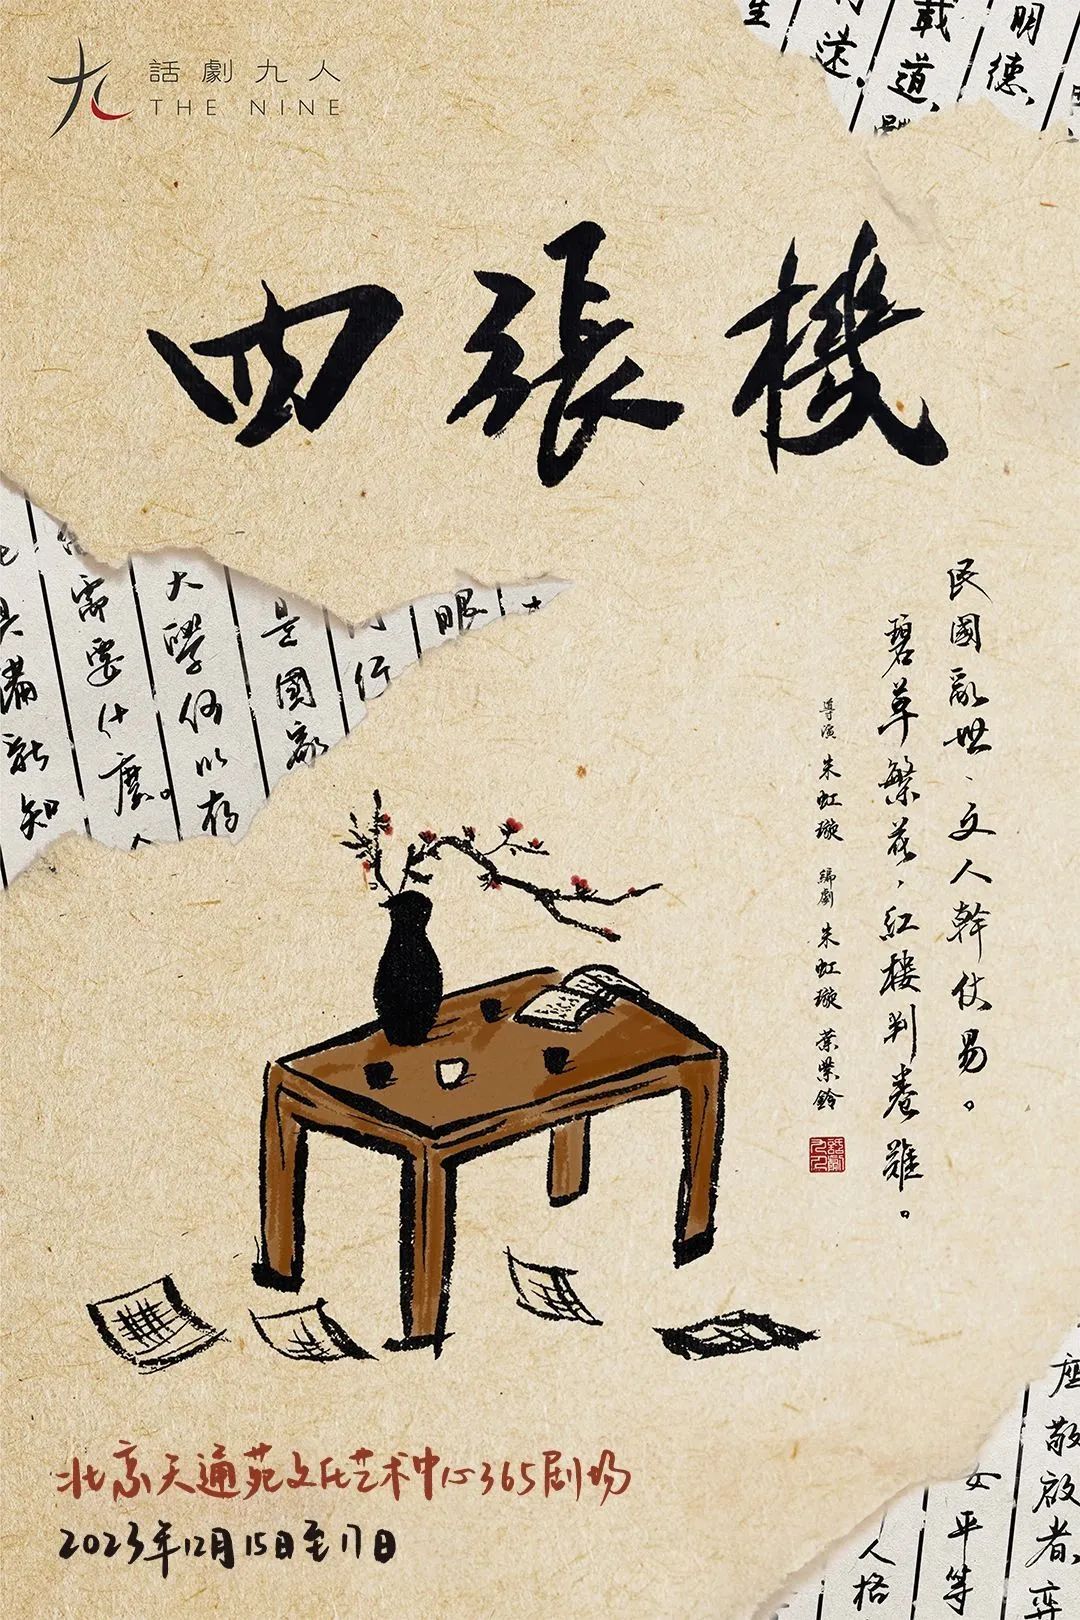 話劇九人
THE NINE
四張機
民國亂世、文人幹仗易。
碧草繁花，紅樓判卷難。
導演 朱虹璇 編劇 朱虹璇 葉紫鈴
載道、
明德、
遠。
是國家
大學何以存
需要什麼。
具備新知
眼
行
座
敬啟者，弈
女平等
人格
北京天通苑文化艺术中心365剧场
2023年12月15日至17日